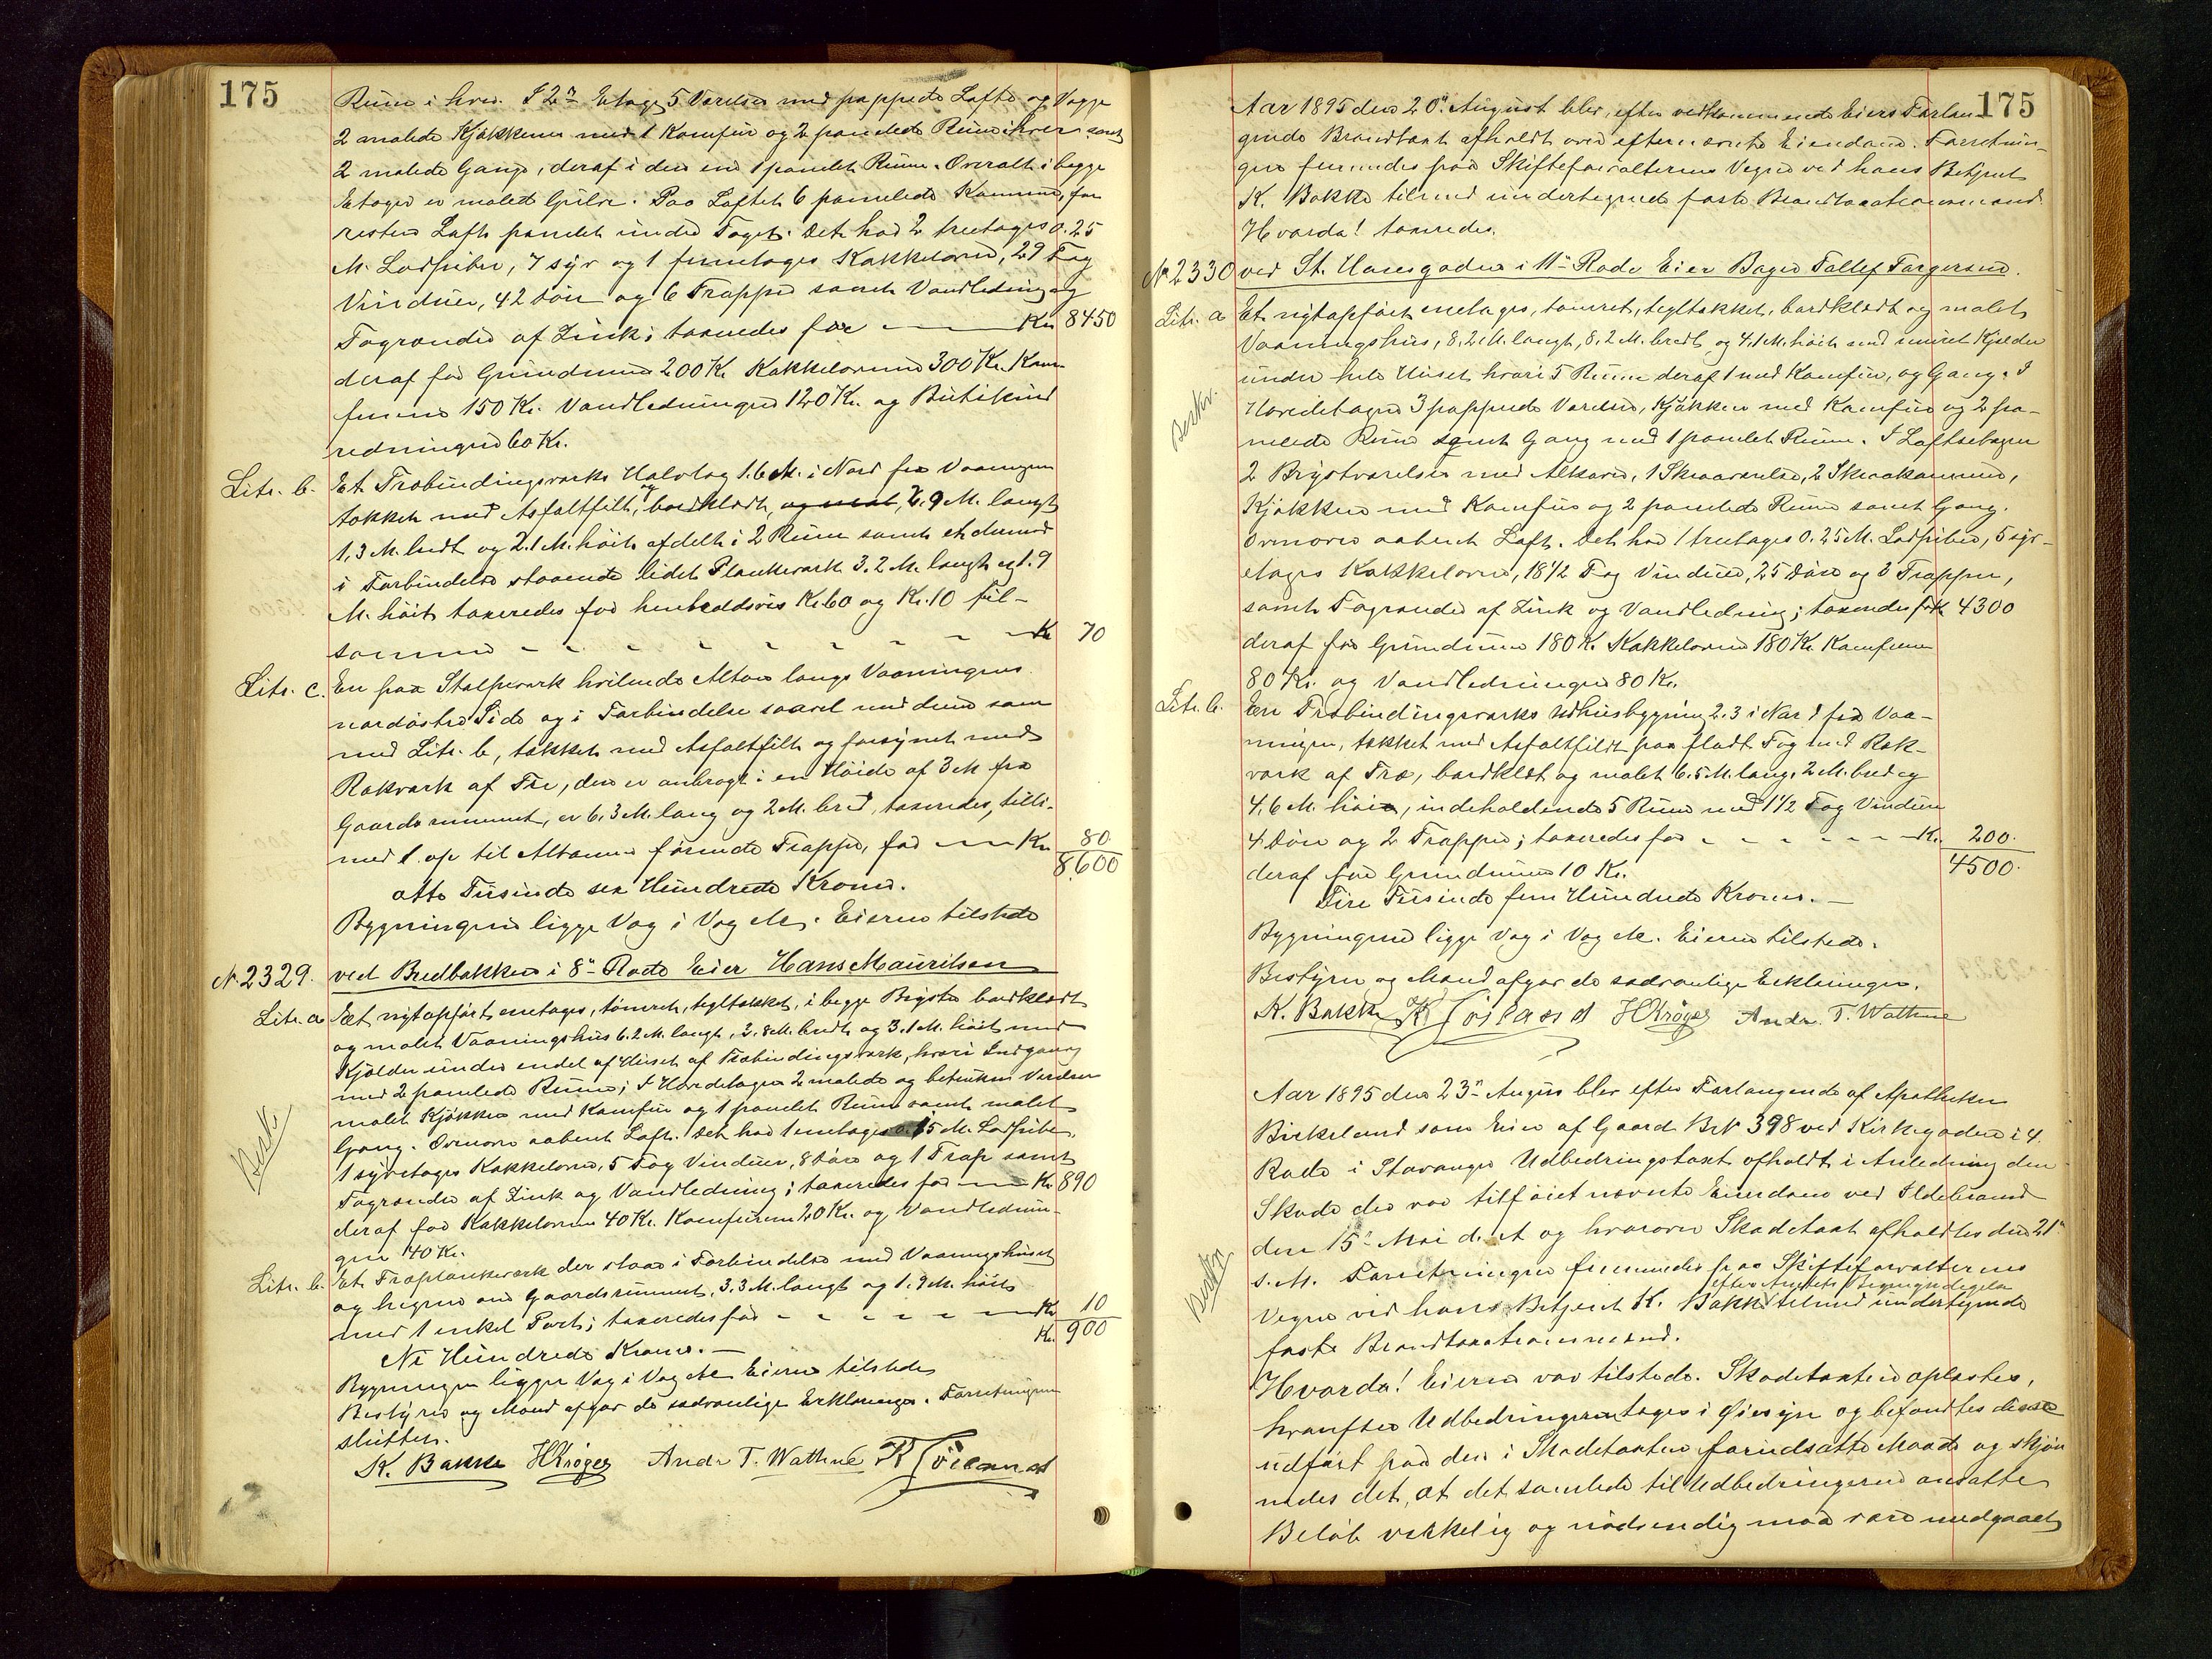 175
Rum i hver. I 2den Etage 5 Værelser med pappede Lofte og Vægge
2 malede Kjøkkener med 1 Komfur og 2 panelede Rum i hver samt
2 malede Gange, deraf i den ene 1 panelet Rum. Overalt i begge
Etager er malet Gulve. Paa Loftet 6 panelede Kammere, for
resten Loft panelet under Taget. Det har 2 treetages 0.25
M. Lodpiber, 7 syv og 1 femetages Kakkelovne, 29 Fag
Vinduer, 42 Döre og 6 Trapper samt Vandledning og
Tagrender af Zink; taxeredes for — Kr. 8450
deraf for Grundmur 200 Kr. Kakkelovnene 300 Kr. Kom-
furene 150 Kr. Vandledningen 120 Kr. og Butikind
redningen 60 Kr.
Litr. b. Et Træbindingsværks Halvtag 1.6 M. i Nord fra Vaaningen
tækket med Asfaltfilt, og bordklædt, 6.9 M. langt
1,3 M. bredt og 2.1 M. höit afdelt i 2 Rum samt et dermed
i Forbindelse staaende lidet Plankeværk 3.2 M. langt og 1.9
M. höit taxeredes for henholdsvis Kr. 60 og Kr. 10 til-
sammen - - - - - - - Kr. 70
Litr. c. En paa Stolpeværk hvilende Altan langs Vaaningens
nordöstre Side og i Forbindelse saavel med denne som
med Litr. b, tækket med Asfaltfilt og forsynet med
Rækværk af Træ, den er anbragt i en Höide af 3 M fra
Gaardsrummet, er 6,3 M. lang og 2 M. bred, taxeredes, tilli-
med 1 op til Altanen förende Trappe, for — Kr. 80
8600
otte Tusinde sex Hundrede Kroner.
Bygningerne ligge Væg i Væg M. Eieren tilstede
No 2329. ved Bredbakken i 8de Rode Eier Hans Mauritsen
Litr. a Et nytopfört enetages, tömret, tegltækket, i begge Bryste bordklædt
og malet Vaaningshus 6.2 M. langt, 2.8 M. bredt og 3.1 M. höit med
Kjælder under endel af Huset af Træbindingsværk, hvori Indgang
med 2 panelede Rum; I Hovedetagen 2 malede og betrukne Værelser
malet Kjökken med Komfur og 1 panelet Rum samt malet
Gang. Ovenover aabent Loft. Det har 1 enetages 0.15 M. Lodpibe,
1 syvetages Kakkelovn, 5 Fag Vinduer, 8 Döre og 1 Trap samt
Tagrender af Zink og Vandledning; taxeredes for — Kr. 890
deraf for Kakkelovnen 40 Kr. Komfuren 20 Kr. og Vandlednin-
gen 40 Kr.
Beskr.
Litr. b. Et Træplankeværk der staar i Forbindelse med Vaaningshuset
og hegner om Gaardsrummet, 3.3 M. langt og 1.9 M. höit
med 1 enkel Port; taxeredes for - - - - - Kr. 10
Kr. 900
Ni Hundrede Kroner. —
Bygningen ligger Væg i Væg M. Eieren tilstede
Bestyrer og Mænd afgav de sædvanlige Erklæringer. Forretningen
sluttet.
K. Bakke HKröger Andr. T. Wathne
175
Aar 1895 den 20de August blev, efter vedkommende Eiers Forlan-
gende Brandtaxt afholdt over efternævnte Eiendom. Forretnin-
gen fremmedes for Skifteforvalterens Vegne ved hans Betjent
K. Bakke tilmed undertegnede faste Brandtaxationsmænd.
Hvorda! taxeredes.
No 2330 ved St. Hansgaden i 11te Rode Eier Bager Tallef Torgersen.
Litr. a Et nytopfört enetages, tömret, tegltækket, bordklædt og malet
Vaaningshus, 8.2 M. langt, 8.2 M. bredt og 4.1 M. höit med muret Kjælder
under hele Huset hvori 5 Rum deraf 1 med Komfur, og Gang. I
Hovedetagen 3 pappede Værelser, Kjökken med Komfur og 2 pa-
nelede Rum samt Gang med 1 panelet Rum. I Loftsetagen
2 Brystværelser med Alkover, 1 Skraaværelse, 2 Skraakammere,
Kjökken med Komfur og 2 panelede Rum samt Gang.
Ovenover aabent Loft. Det har 1 treetages 0.25 M. Lodpibe, 5 syv-
etages Kakkelovne, 18 1/2 Fag Vinduer, 25 Döre og 3 Trapper,
samt Tagrender af Zink og Vandledning; taxeredes for Kr. 4300
deraf for Grundmuren 180 Kr. Kakkelovnene 180 Kr. Komfurene
80 Kr. og Vandledningen 80 Kr.
Beskr.
Litr. b. En Træbindingsværks Udhusbygning 2.3 i Nord fra Vaa-
ningen, tækket med Asfaltfilt paa fladt Tag med Ræk-
værk af Træ, bordklædt og malet 6.5 M. lang, 2 M. bred og
4.6 M. höi, indeholdende 5 Rum med 1 1/2 Fag Vinduer
4 Döre og 2 Trapper; taxeredes for - - - - - Kr. 200.
4500.
deraf for Grundmuren 10 Kr.
Fire Tusinde fem Hundrede Kroner. —
Bygningerne ligge Væg i Væg M. Eieren tilstede.
Bestyrer og Mænd afgav de sædvanlige Erklæringer.
K. Bakke HKröger Andr. T. Wathne
Aar 1895 den 23de August blev efter Forlangende af Apotheker
Birkeland som Eier af Gaard B No 398 ved Kirkegaden i 4.
Rode i Stavanger Udbedringstaxt afholdt i Anledning den
Skade der var tilföiet nævnte Eiendom ved Ildebrand
den 15de Mai d. A og hvorover Skadetaxt afholdtes den 21de
s. M. Forretningen fremmedes for Skifteforvalterens
Vegne ved hans Betjent K. Bakke tilmed undertegnede
faste Brandtaxationsmænd.
Beskr.
Hvorda! Eieren var tilstede. Skadetaxten oplæstes,
hvorefter Udbedringen toges i Öiesyn og befandtes disse
udfört paa den i Skadetaxten forudsatte Maade og skjön
nedes det, at det samlede til Udbedringerne ansatte
Belöb virkelig og nödvendig maa være medgaaet